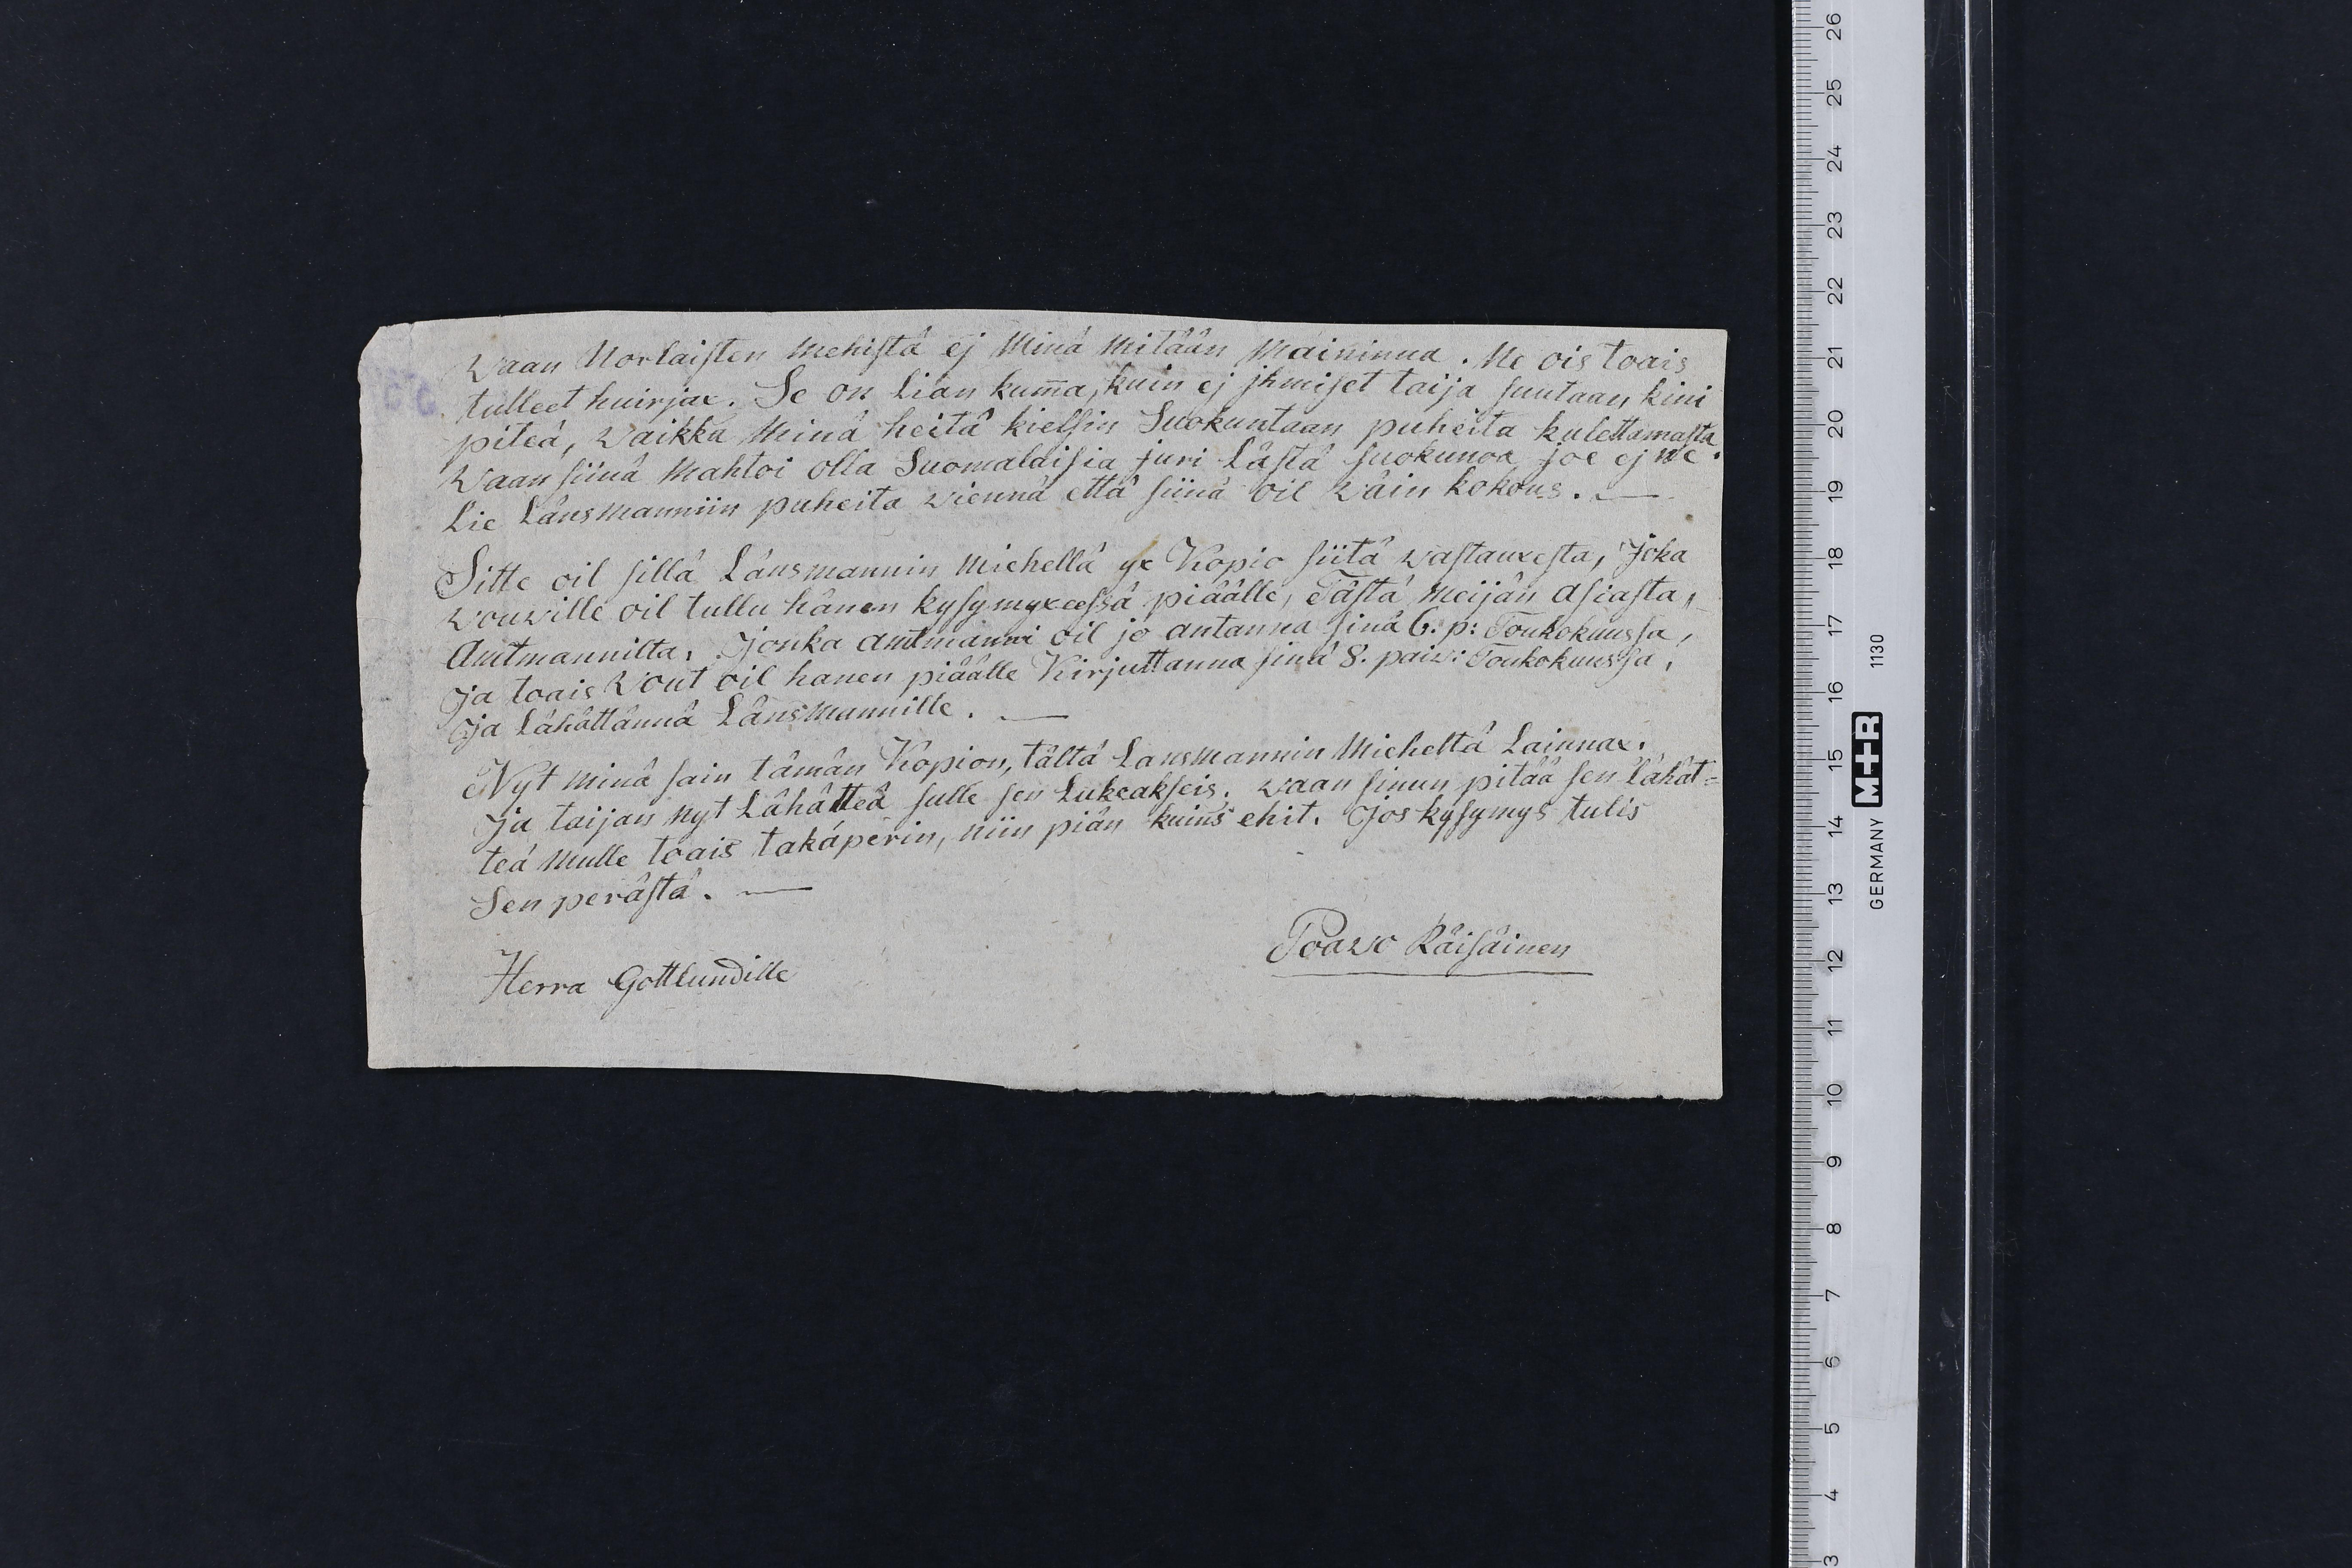 Waan Norlaisten mehistä ej Minä mitään Maininna. Ne ois toais
tulleet huirjax. Se on lian kum̄a, kuin ej jhmiset taija suutaan kini
piteä, Waikka Minä heitä kielsin Suokuntaan puheita kulettamasta
Waan siinä Mahtoi olla Suomalaisia juri Lästä suokunoa joe ej ne.
Lie Länsmanniin puheita viennä että siinä oil väin kokous. —
Sitte oil sillä Länsmannin Miehellä yx Kopio siitä vastauxesta, joka
vouville oil tullu hänen kysymyxeessä piäälle, Tästä Meijän asiasta,
Amtmannilta, jonka amtmanni oil jo antanna sinä 6. p: Toukokuussa,
ja toais Vout oil hänen piäälle Kirjuttanna sinä 8. paiv: Toukokuussa,
ja Lähättännä Länsmannille. —
Nyt minä sain tämän Kopion, tältä Lansmannin Mieheltä Lainnax.
ja taijan nyt Lähätteä sulle sen Lukeakseis. Vaan sinun pitää sen lähät=
teä Mulle toais takäperin, niin piän kuins ehit. jos kysymys tulis
Sen perästä. —
Poavo Räisäinen
Herra Gottlundille
26
25
24
23
22
21
20
19
18
17
16
15
14
13
12
11
10
9
8
7
6
5
4
3
GERMANY M+R 1130